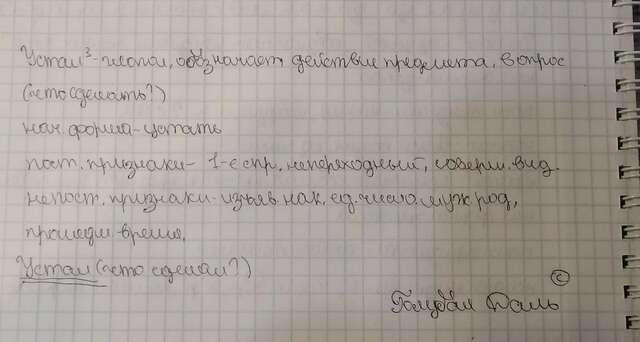 Устал³-глагол, обозначает действие предмета, вопрос
(что сделать?)
нач. форма-устать
пост. признаки- 1-е спр, непереходный, соверш. вид.
непост. признаки-изъяв. нак. ед. число. муж род,
прошедш-время.
Устал (что сделал?)
©
Голубая Даль